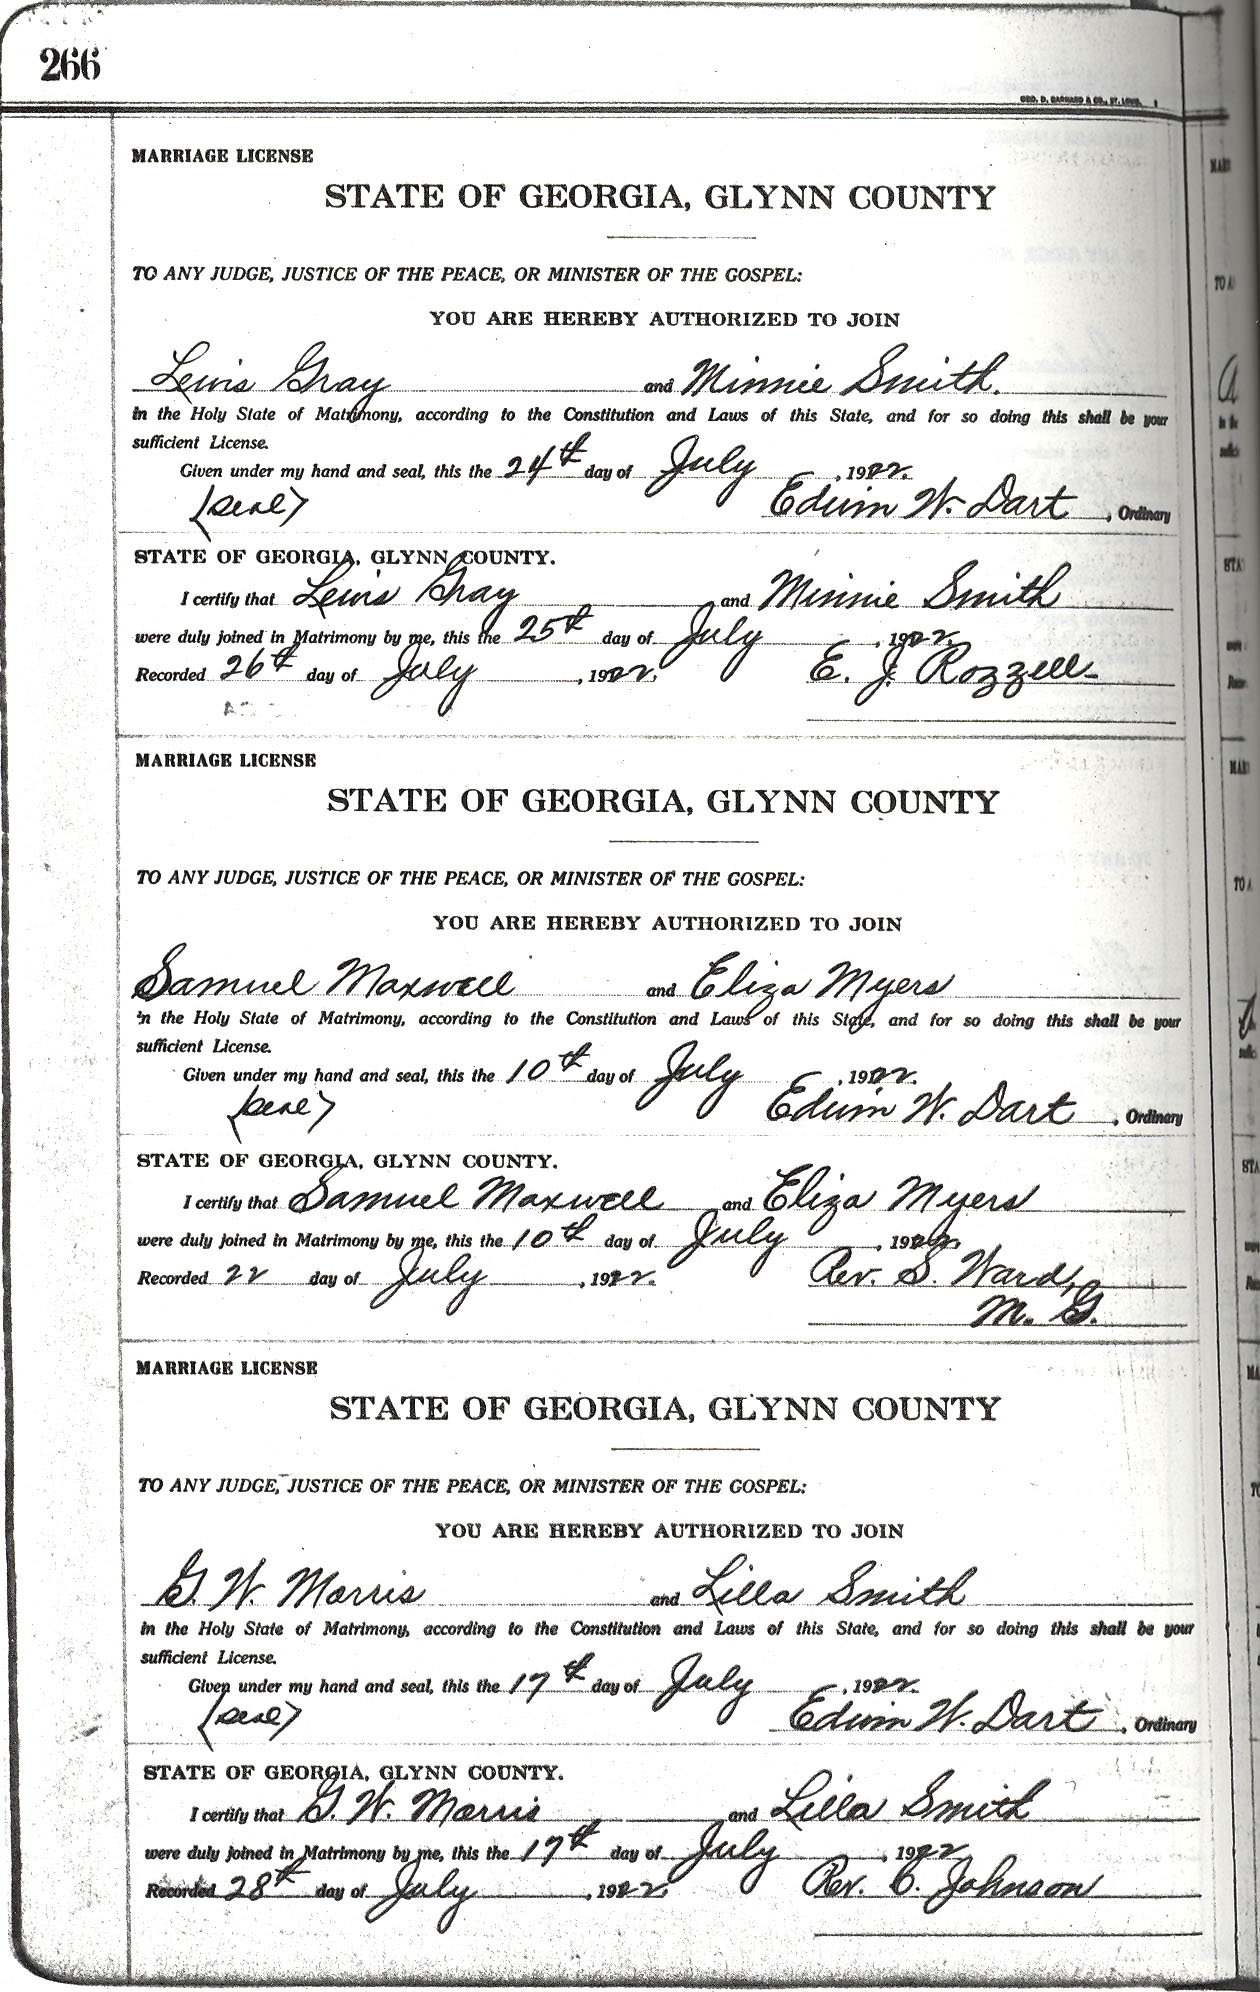 266
GEO. D. BARNARD & CO., ST. LOUIS.
MARRIAGE LICENSE
STATE OF GEORGIA, GLYNN COUNTY
TO ANY JUDGE, JUSTICE OF THE PEACE, OR MINISTER OF THE GOSPEL:
YOU ARE HEREBY AUTHORIZED TO JOIN
Lewis Gray and Minnie Smith.
in the Holy State of Matrimony, according to the Constitution and Laws of this State, and for so doing this shall be your
sufficient License.
Given under my hand and seal, this the 24th day of July, 1922.
(seal) Edwin W. Dart, Ordinary
STATE OF GEORGIA, GLYNN COUNTY.
I certify that Lewis Gray and Minnie Smith
were duly joined in Matrimony by me, this the 25th day of July, 1922.
Recorded 26th day of July, 1922. E. J. Rozzell
MARRIAGE LICENSE
STATE OF GEORGIA, GLYNN COUNTY
TO ANY JUDGE, JUSTICE OF THE PEACE, OR MINISTER OF THE GOSPEL:
YOU ARE HEREBY AUTHORIZED TO JOIN
Samuel Maxwell and Eliza Myers
in the Holy State of Matrimony, according to the Constitution and Laws of this State, and for so doing this shall be your
sufficient License.
Given under my hand and seal, this the 10th day of July, 1922.
(seal) Edwin W. Dart, Ordinary
STATE OF GEORGIA, GLYNN COUNTY.
I certify that Samuel Maxwell and Eliza Myers
were duly joined in Matrimony by me, this the 10th day of July, 1922.
Recorded 22 day of July, 1922. Rev. S. Ward,
M. G.
MARRIAGE LICENSE
STATE OF GEORGIA, GLYNN COUNTY
TO ANY JUDGE, JUSTICE OF THE PEACE, OR MINISTER OF THE GOSPEL:
YOU ARE HEREBY AUTHORIZED TO JOIN
G. W. Morris and Lilla Smith
in the Holy State of Matrimony, according to the Constitution and Laws of this State, and for so doing this shall be your
sufficient License.
Given under my hand and seal, this the 17th day of July, 1922.
(seal) Edwin W. Dart, Ordinary
STATE OF GEORGIA, GLYNN COUNTY.
I certify that G. W. Morris and Lilla Smith
were duly joined in Matrimony by me, this the 17th day of July, 1922
Recorded 28th day of July, 1922. Rev. C. Johnson